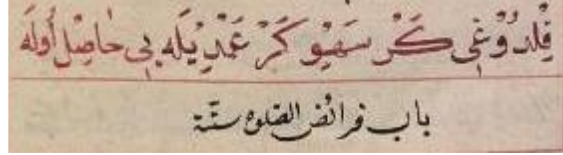 قِلْدُوغِى كَرْ سَهْيُو كَرْ عَمْدِيلَه بِى حَاصِلْ أُولَه
باب فرائض الصلوة ستّة